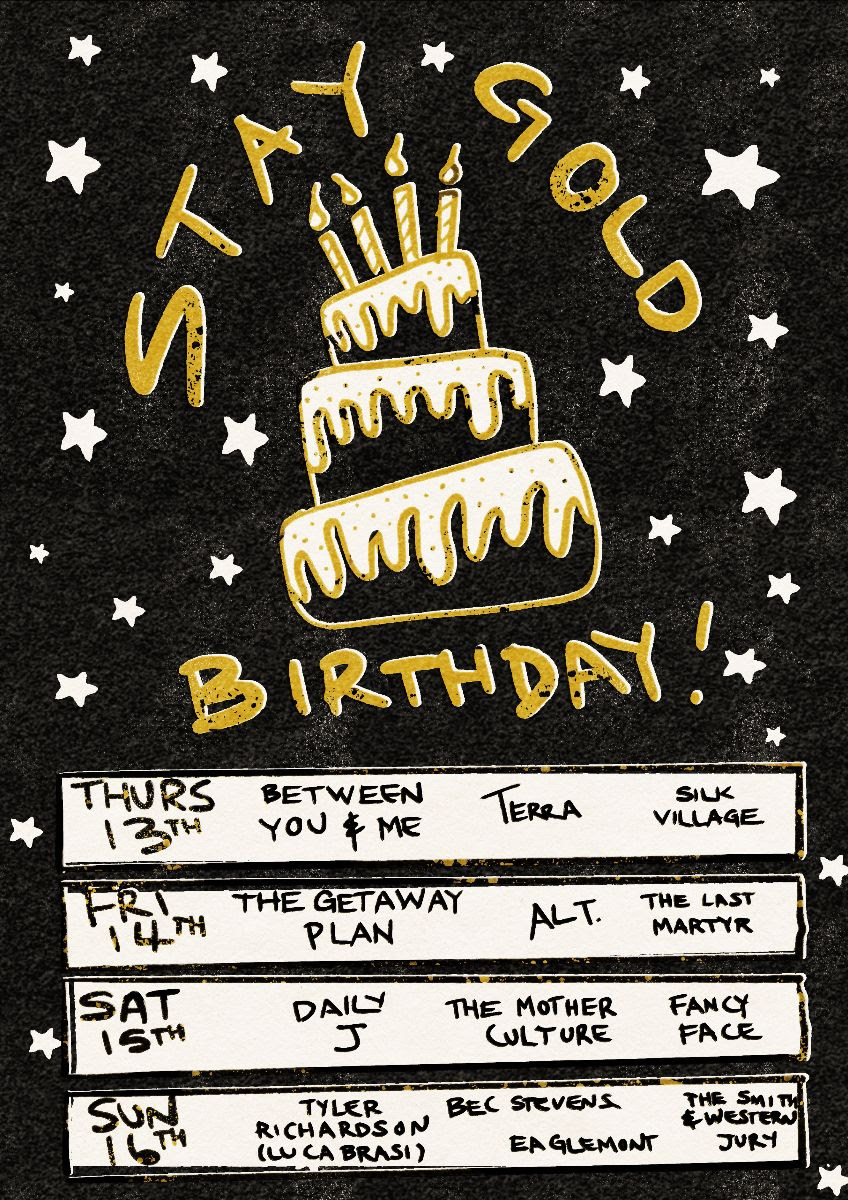 STAY GOLD
BIRTHDAY!
THURS
13TH
BETWEEN
YOU & ME
TERRA
SILK
VILLAGE
FRI
14TH
THE GETAWAY
PLAN
ALT.
THE LAST
MARTYR
SAT
15TH
DAILY
J
THE MOTHER
CULTURE
FANCY
FACE
SUN
16TH
TYLER
RICHARDSON
(LUCA BRASI)
BEC STEVENS
EAGLEMONT
THE SMITH
& WESTERN
JURY